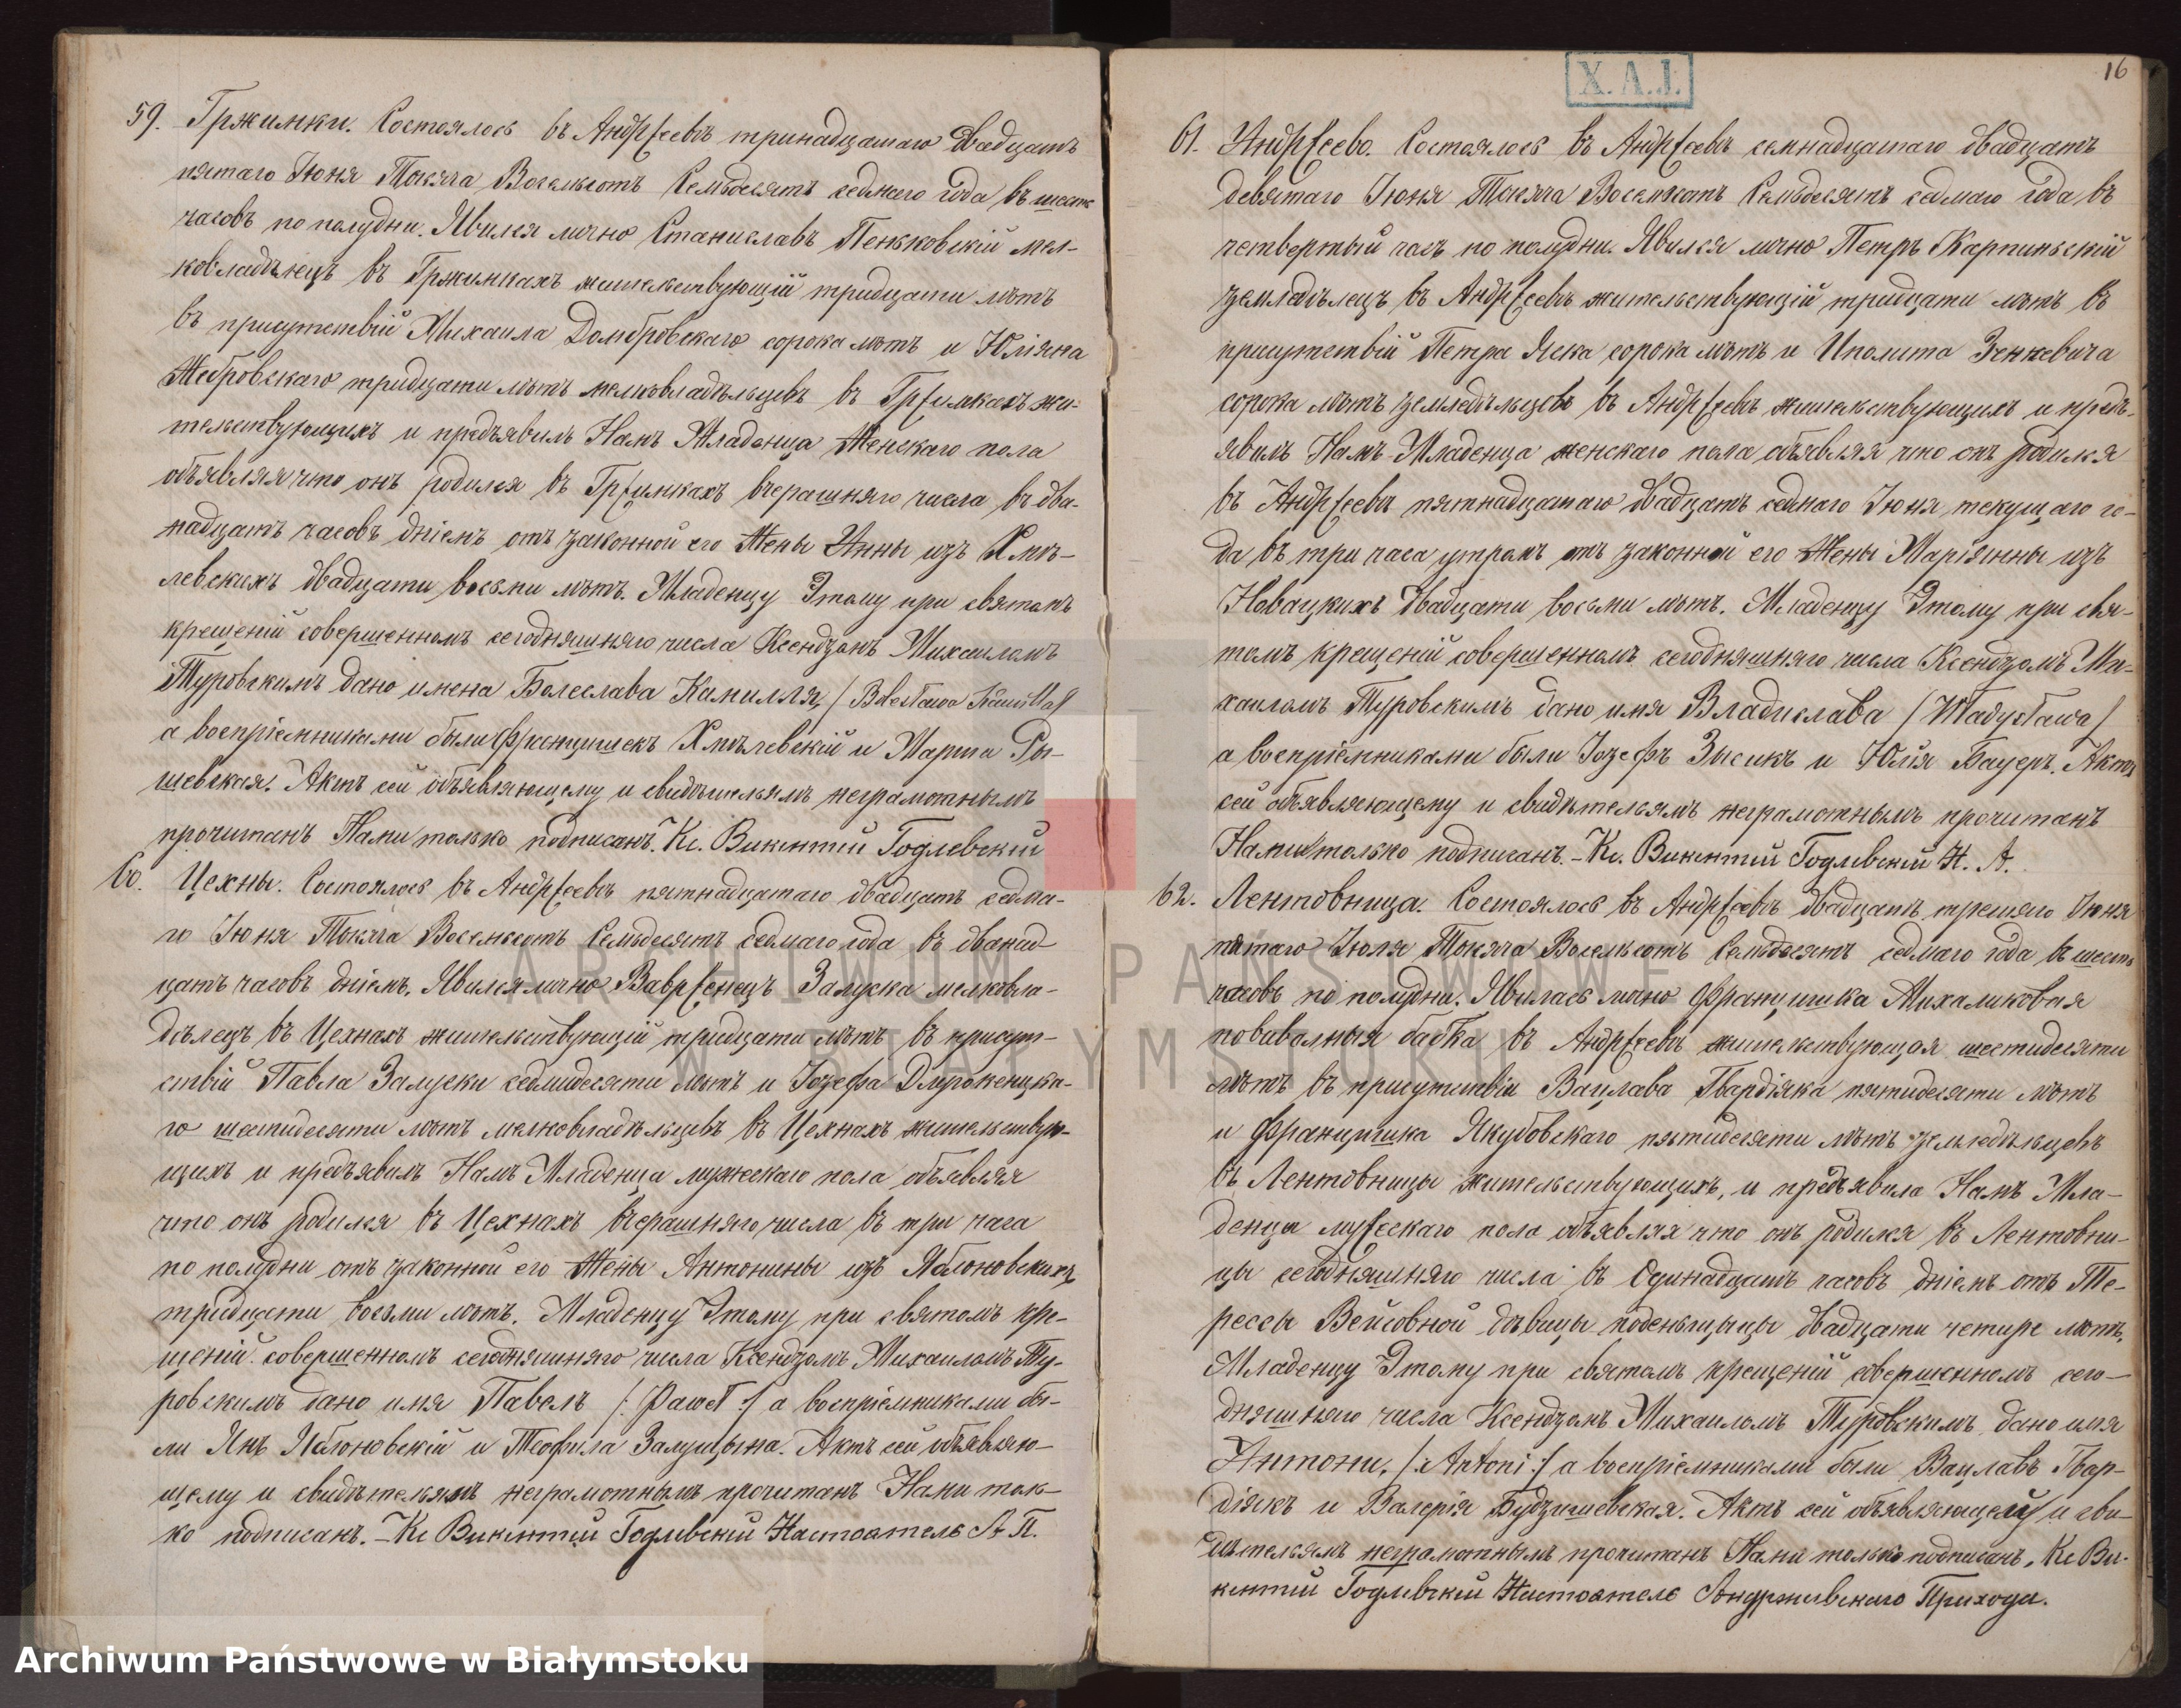 59. Гржимки. Состоялось въ Андржеевѣ тринадцатаго двадцать
пятаго Іюня Тысяча Восемьсотъ Семьдесятъ седмаго года въ шесть
часовъ по полудни. Явился лично Станиславъ Пеньковскій мел-
ковладѣлецъ въ Гржимкахъ жительствующій тридцати лѣтъ
въ присутствіи Михаила Домбровскаго сорока лѣтъ и Юліяна
Жебровскаго тридцати лѣтъ мелковладѣльцевъ въ Гржимкахъ жи-
тельствующихъ и предъявилъ Намъ Младенца Женскаго пола
объявляя что онъ родился въ Гржимкахъ вчерашняго числа въ два-
надцать часовъ днiемъ отъ законной его Жены Анны изъ Хмѣ-
левскихъ двадцати восьми лѣтъ. Младенцу Этому при святомъ
крещеніи совершенномъ сегодняшняго числа Ксендзомъ Михаиломъ
Туровскимъ дано имена Болеслава Камилля / Bolesława Kamilla /
а воспріемниками были Францишекъ Хмѣлевскій и Марта Ры-
шевская. Актъ сей объявляющему и свидѣтельямъ неграмотнымъ
прочитанъ Нами только подписанъ. Кс. Викентій Годлевскій
60. Цехны. Состоялось въ Андржеевѣ пятнадцатаго двадцать седма-
го Іюня Тысяча Восемьсотъ Семьдесятъ седмаго года въ дванад-
цать часовъ днiемъ. Явился лично Ваврженецъ Залуска мелковла-
дѣлецъ въ Цехнахъ жительствующій тридцати лѣтъ въ присут-
ствіи Павла Залуски седмидесяти лѣтъ и Іозефа
го шестидесяти лѣтъ мелковладѣльцевъ въ Цехнахъ жительствую-
щихъ и предъявилъ Намъ Младенца мужескаго пола объявляя
что онъ родился въ Цехнахъ вчерашняго числа въ три часа
по полудни отъ законной его Жены Антонины изъ Яблоновскихъ
тридцати восьми лѣтъ. Младенцу Этому при святомъ кре-
щеніи совершенномъ сегодняшняго числа Ксендзомъ Михаиломъ Ту-
ровскимъ дано имя Павелъ /: Paweł :/ а воспріемниками бы-
ли Янъ Яблоновскій и Теофила Залуцына. Актъ сей объявляю-
щему и свидѣтельямъ неграмотнымъ прочитанъ Нами толь-
ко подписанъ. – Кс Викентій Годлевскій Настоятель А. П.
X. A. J.
16
61. Андржеево. Состоялось въ Андржеевѣ семнадцатаго двадцать
девятаго Іюня Тысяча Восемьсотъ Семьдесятъ седмаго года въ
четвертый часъ по полудни. Явился лично Петръ Карпинскій
земледѣлецъ въ Андржеевѣ жительствующій тридцати лѣтъ въ
присутствіи Петра Яска сорока лѣтъ и Иполита Зенкевича
сорока лѣтъ земледѣльцевъ въ Андржеевѣ жительствующихъ и предъ-
явилъ Намъ Младенца женскаго пола объявляя что онъ родился
въ Андржеевѣ пятнадцатаго двадцать седмаго Іюня текущаго го-
да въ три часа утромъ отъ законной его Жены Маріянны изъ
Новацкихъ двадцати восьми лѣтъ. Младенцу Этому при свя-
томъ крещеніи совершенномъ сегодняшняго числа Ксендзомъ Ми-
хаиломъ Туровскимъ дано имя Владислава / Władysława /
а воспріемниками были Іозефъ Зысикъ и Юлія Бауеръ. Актъ
сей объявляющему и свидѣтельямъ неграмотнымъ прочитанъ
Нами только подписанъ. – Кс. Викентій Годлевскій Н. А.
62. Лентовница. Состоялось въ Андржеевѣ двадцать третяго Іюня
пятаго Іюля Тысяча Восемьсотъ Семьдесятъ седмаго года въ шесть
часовъ по полудни. Явилась лично Францишка Михаликовая
повивальная бабка въ Андржеевѣ жительствующая шестидесяти
лѣтъ въ присутствіи Вацлава Гвардіяка пятидесяти лѣтъ
и Францишка Якубовскаго пятидесяти лѣтъ земледѣльцевъ
въ Лентовницы жительствующихъ, и предъявила Намъ Мла-
денца мужескаго пола объявляя что онъ родился въ Лентовни-
цы сегодняшняго числа въ Одинадцать часовъ днiемъ отъ Те-
рессы Вейсовной дѣвицы поденьщицы двадцати четыре лѣтъ.
Младенцу Этому при святомъ крещеніи совершенномъ сего-
дняшняго числа Ксендзомъ Михаиломъ Туровскимъ дано имя
Антони, /: Antoni :/ а воспріемниками были Вацлавъ Гвар-
діякъ и Валерія Будзишевская. Актъ сей объявляющей и сви-
дѣтельямъ неграмотнымъ прочитанъ Нами только подписанъ. Кс Ви-
кентій Годлевскій Настоятель Андржеевскаго Прихода.
ARCHIWUM PAŃSTWOWE
W BIAŁYMSTOKU
Archiwum Państwowe w Białymstoku